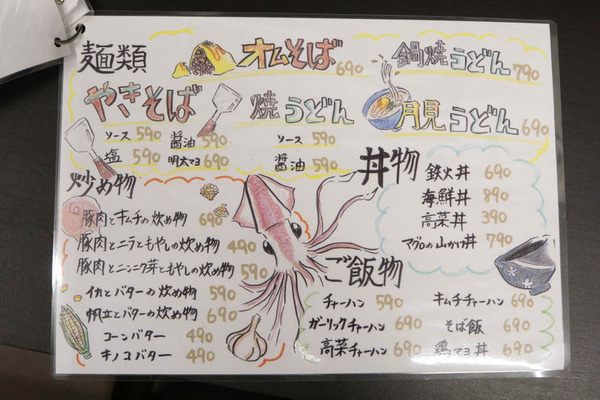 麺類
オムそば 690
鍋焼うどん 790
やきそば
焼うどん
月見うどん 690
ソース 590
醤油 590
ソース 590
塩 590
明太マヨ 690
醤油 590
炒め物
豚肉とキムチの炒め物 690
豚肉とニラともやしの炒め物 490
豚肉とニンニク芽ともやしの炒め物 590
イカとバターの炒め物 590
帆立とバターの炒め物 690
コーンバター 490
キノコバター 490
丼物
鉄火丼 690
海鮮丼 890
高菜丼 390
マグロの山かけ丼 790
ご飯物
チャーハン 590
キムチチャーハン 690
ガーリックチャーハン 690
そば飯 690
高菜チャーハン 690
鶏マヨ丼 690